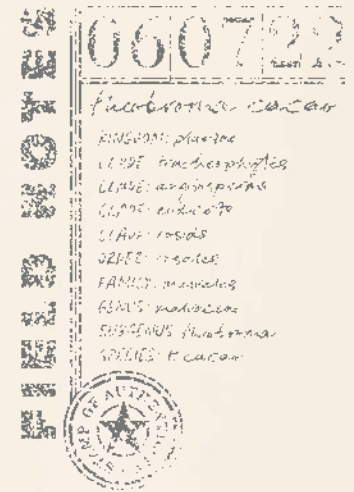 FIELD NOTES
060722
theobroma cacao
KINGDOM: plantae
CLADE: tracheophytes
CLADE: angiosperms
CLADE: eudicots
CLADE: rosids
ORDER:
FAMILY: malvales
GENUS: malvaceae
SUBGENUS: theobroma
SPECIES: t cacao
STAMP OF AUTHENTICITY